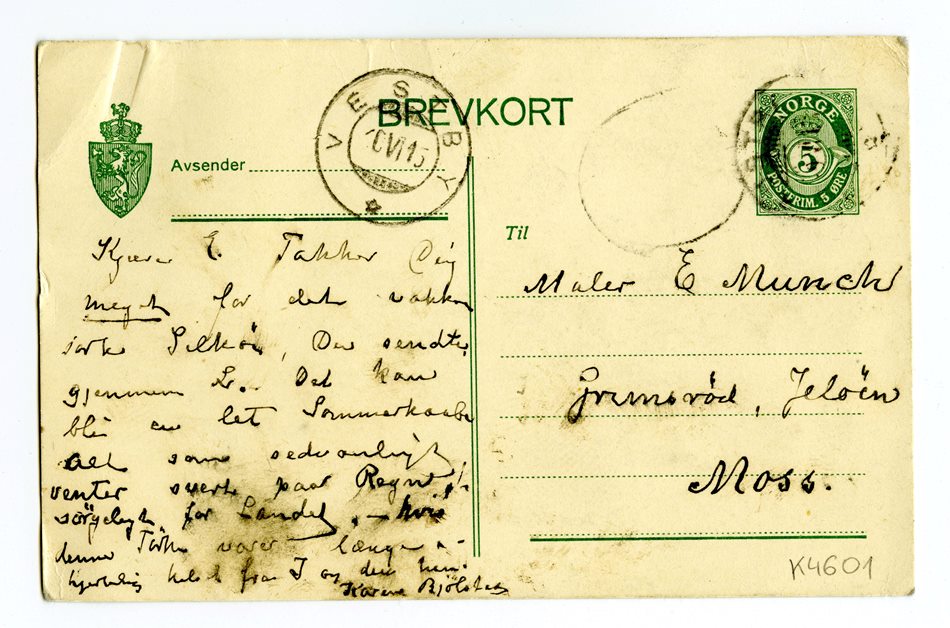 BREVKORT
VESTBY
VI 15
Avsender
NORGE
5
POSTFRIM. 5 ØRE
Til
Maler E Munch
Grimsröd, Jelöen
Moss.
Kjære E. Takker Dig
meget for det vakkre
Silketöi, Du sendte
gjennem L. Det kan
bli en let Sommerkaabe
Alt som sedvanligt
venter svert paa Regn,
sörgeligt for Landet, – hvis
denne Törke varer længe –
hjertelig hilset fra I og din hen.
Karen Bjölstad
K4601